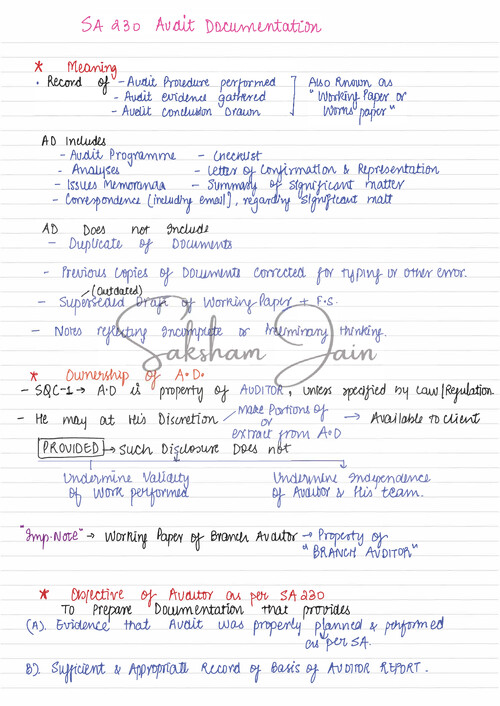 SA 230 Audit Documentation
* Meaning
· Record of - Audit Procedure performed
- Audit evidence gathered
- Audit conclusion drawn
Also Known as
"Working Paper or
Work paper"
AD Includes
- Audit Programme - Checklist
- Analyses - Letter of Confirmation & Representation
- Issues Memoranda - Summary of Significant matter
- Correspondence [including email], regarding Significant matt
AD Does not Include
- Duplicate of Documents
- Previous Copies of Documents corrected for typing or other error.
(outdated)
- Superseded Draft of Working Paper + F.S.
- Notes reflecting Incomplete or Preliminary thinking.
Saksham Jain
* Ownership of A.D.
- SQC-1 → A.D is property of AUDITOR, unless specified by Law/Regulation
- He may at His Discretion make Portions of or extract from A.D → Available to client
PROVIDED → Such Disclosure Does not
Undermine Validity Undermine Independence
of Work performed of Auditor & His team.
"Imp. Note" → Working Paper of Branch Auditor → Property of
"BRANCH AUDITOR"
* Objective of Auditor as per SA 230
To Prepare Documentation that provides
(A). Evidence that Audit was properly planned & performed
as per SA.
B). Sufficient & Appropriate Record of Basis of AUDITOR REPORT.